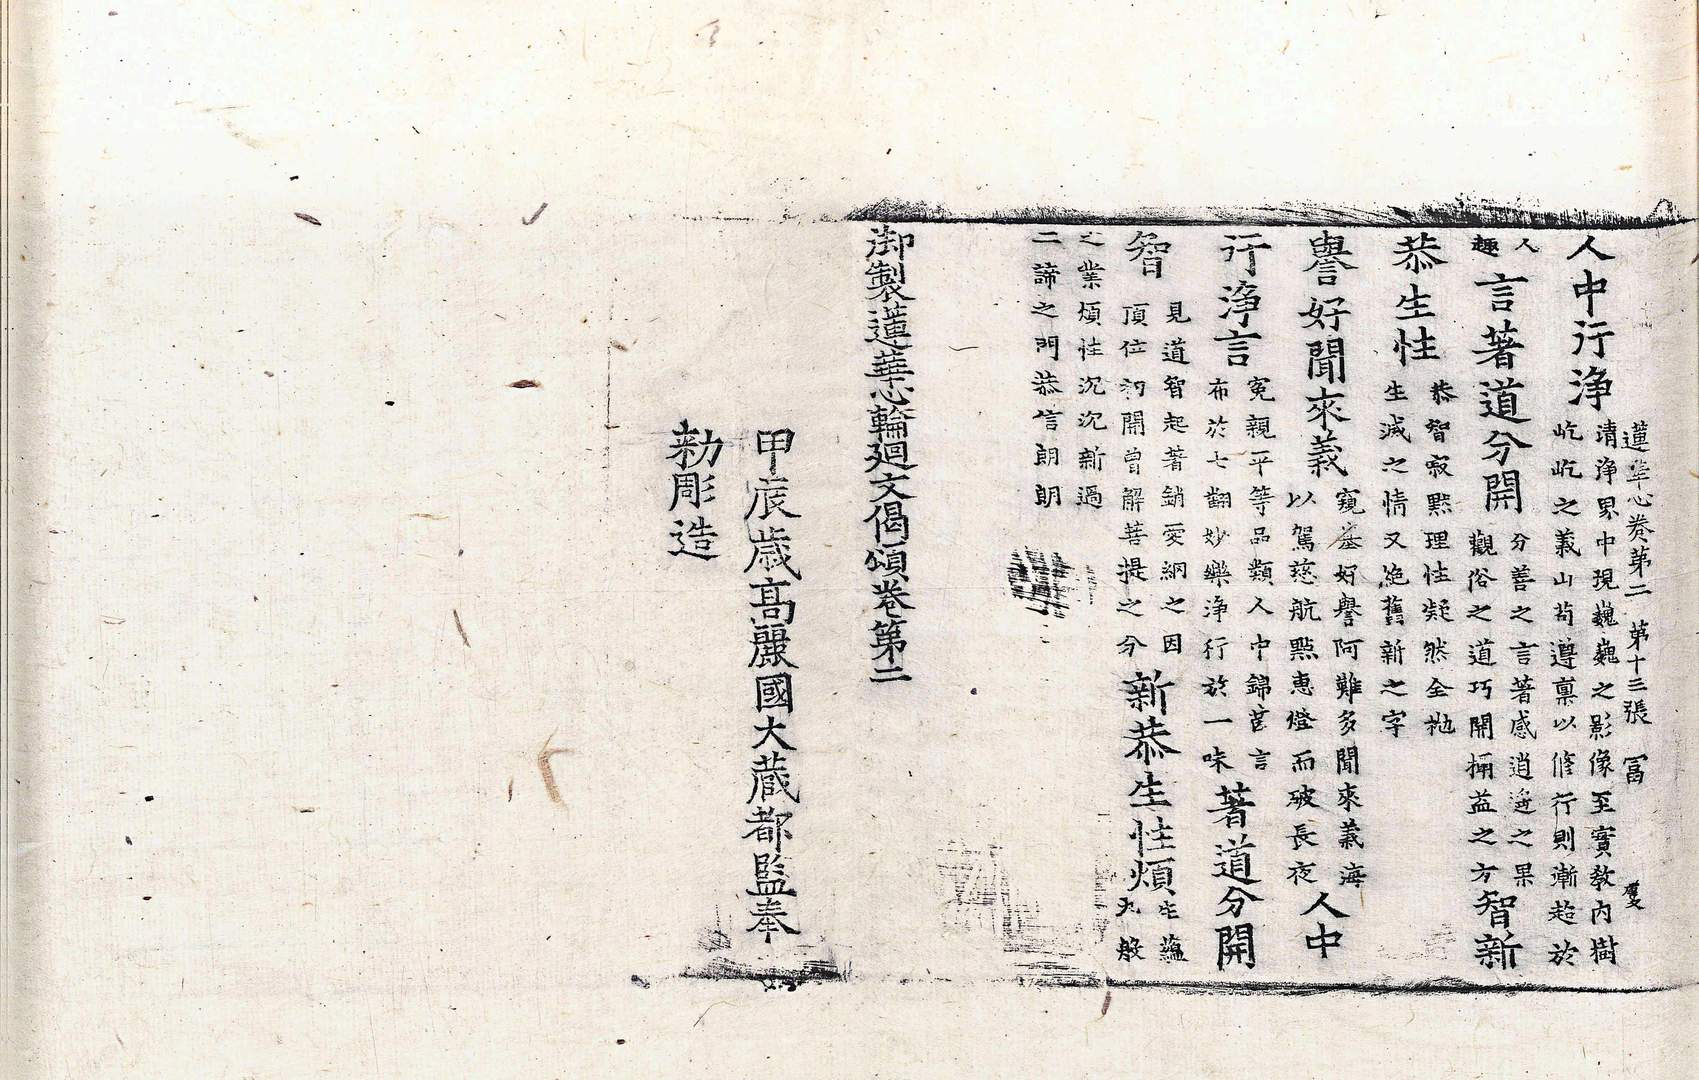 蓮華心卷第二 第十三張 冨
人中行淨 清淨界中現巍巍之影像至實教內樹
屹屹之義山苟遵稟以修行則漸超於
人
趣 言著道分開 分善之言著感逍遙之果
觀俗之道巧開捐益之方 智新
恭生性 恭智寂默理性凝然全抛
生滅之情又絕舊新之字
譽好聞來義 窺基好譽阿難多聞來義海
以駕慈航點惠燈而破長夜 人中
行淨言 冤親平等品類人中錦筥言
布於七翻妙樂淨行於一味 著道分開
智 見道智起著銷愛網之因
頂位初開曾解菩提之分 新恭生性煩 生蘊
九般
之業煩性沉沉新過
二諦之門恭信朗朗
御製蓮華心輪廻文偈頌卷第二
甲辰歲高麗國大藏都監奉
勅彫造